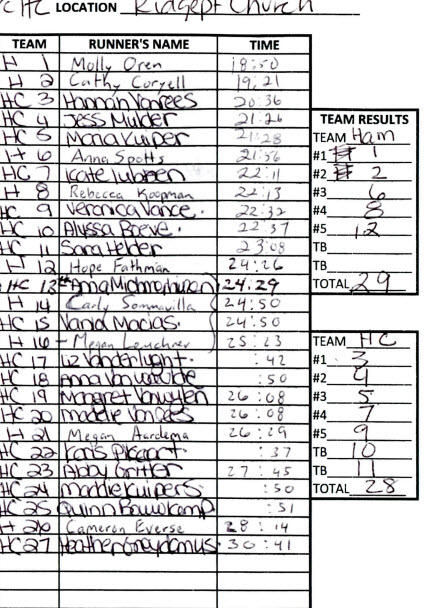 HC LOCATION Ridgept Church
TEAM RUNNER'S NAME TIME
H 1 Molly Oren 18:50
H 2 Cathy Coryell 19:21
HC 3 Hannah VanRees 20:36
HC 4 Jess Mulder 21:26
HC 5 Mona Kuiper 21:28
H 6 Anna Spotts 21:56
HC 7 Kate Lubben 22:11
H 8 Rebecca Koopman 22:13
HC 9 Veronica Vance. 22:32
HC 10 Alyssa Boeve. 22:37
HC 11 Sara Helder 23:08
H 12 Hope Fathman 24:26
HC 13 Anna 24:29
H 14 Carly Sommavilla 24:50
HC 15 Macias. 24:50
H 16 - Megan 25:23
HC 17 Liz :42
HC 18 Anna :50
HC 19 Margaret 26:08
HC 20 Maddie 26:08
H 21 Megan Aardema 26:29
HC 22 :37
HC 23 Abby Gritter 27:45
HC 24 Maddie Kuipers :50
HC 25 Quinn Bouwkamp :51
H 26 Cameron Everse 28:14
HC 27 Heather Greydanus 30:41
TEAM RESULTS
TEAM Ham
#1 1
#2 2
#3 6
#4 8
#5 12
TB
TB
TOTAL 29
TEAM HC
#1 3
#2 4
#3 5
#4 7
#5 9
TB 10
TB 11
TOTAL 28